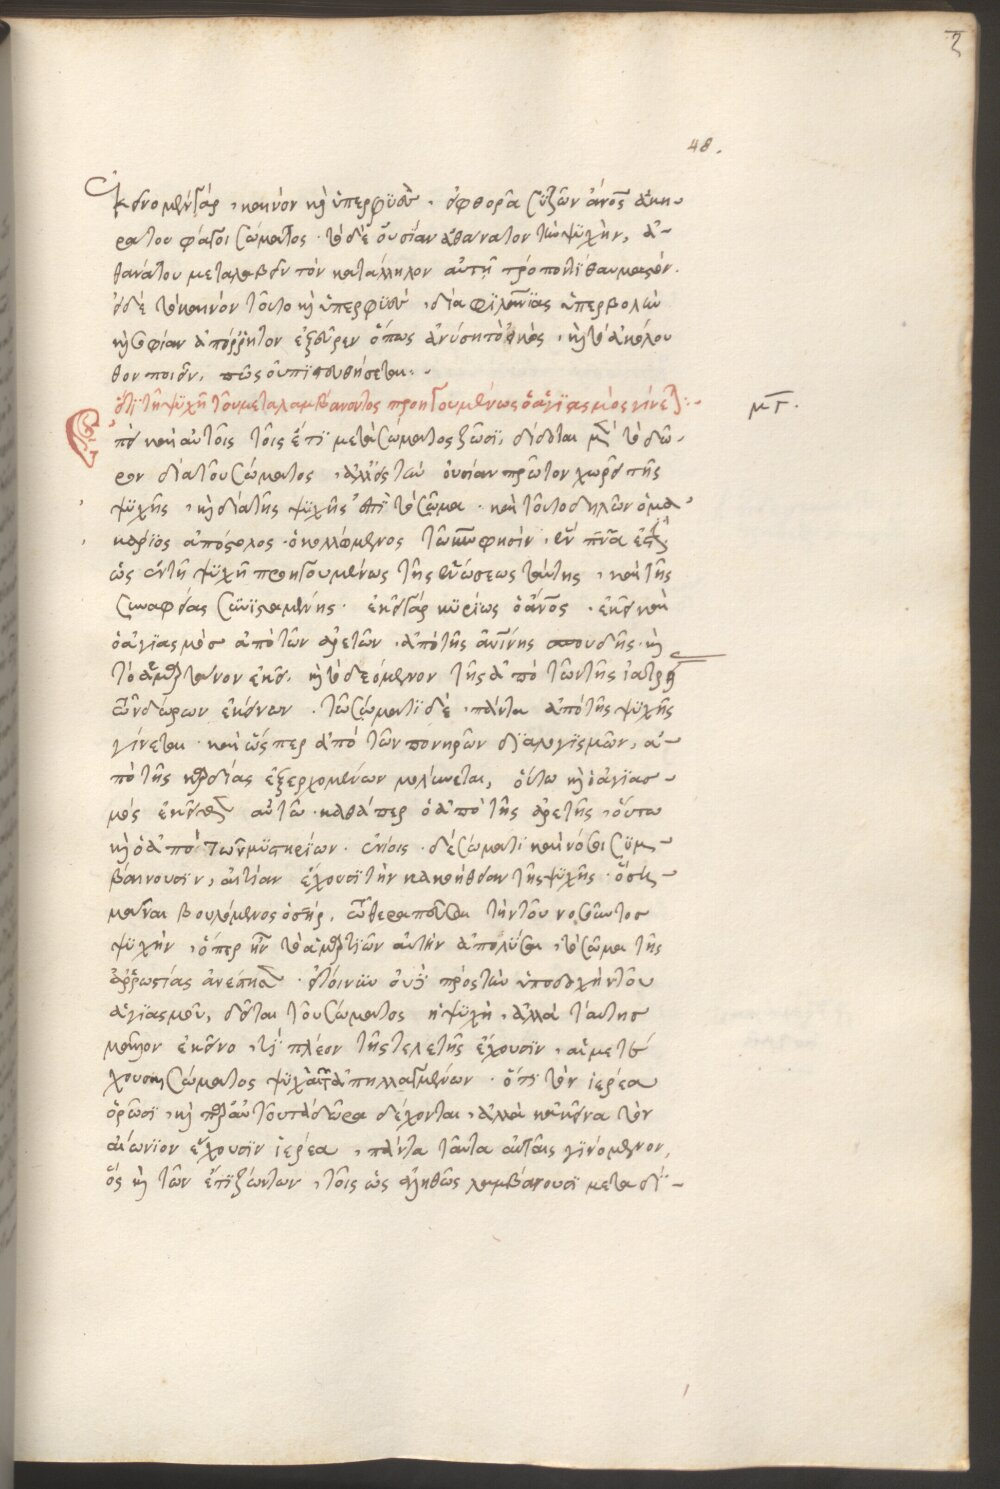 ζ
48.
ἐκεῖνο μὲν γὰρ, καινὸν καὶ ὑπερφυὲς, εἰ φθορᾶ συζῶν ἄνος ἀκη-
ράτου φάγοι σώματος. τὸ δὲ οὐσίαν ἀθάνατον τὴν ψυχὴν, ἀ-
θανάτου μεταλαβεῖν τὸν κατάλληλον αὐτῆ τρόπον τί θαυμαστόν.
εἰ δὲ τὸ καινὸν τοῦτο καὶ ὑπερφυὲς, διὰ φιλανίας ὑπερβολὴν
καὶ σοφίαν ἀπόρρητον ἐξεῦρεν ὅπως ἀνύση τὸ εἰκὸς, καὶ τὸ ἀκόλου
θον ποιεῖν, πῶς οὐ πιστευθήσεται.
ὅτι τῆ ψυχῆ τοῦ μεταλαμβάνοντος προηγουμένως ὁ ἁγιασμὸς γίνετ:
μγ.
Ἐπεὶ καὶ αὐτοῖς τοῖς ἔτι μετὰ σώματος ζῶσι, δίδοται μὲν τὸ δῶ-
ρον διὰ τοῦ σώματος, ἀλλ' εἰς τὴν οὐσίαν πρῶτον χωρεῖ τῆς
ψυχῆς, καὶ διὰ τῆς ψυχῆς ἐπὶ τὸ σῶμα. καὶ τοῦτο δηλῶν ὁ μα
κάριος ἀπόστολος. ὁ κολλώμενος τῶ κω φησὶν, ἓν πνα ἐστι
ὡς ἐν τῆ ψυχῆ προηγουμένως τῆς ἑνώσεως ταύτης, καὶ τῆς
συναφείας συνισταμένης. ἐκεῖ γὰρ κυρίως ὁ ἄνος. ἐκεῖ καὶ
ὁ ἁγιασμὸσ ἀπὸ τῶν ἀρετῶν. ἀπὸ τῆς ἀνίνης σπουδῆς. καὶ
τὸ ἁμαρτάνον ἐκεῖ. καὶ τὸ δεόμενον τῆς ἀπὸ τῶν τῆς ἰατρεί
δώρων ἐκείνων. τῶ σώματι δὲ, πάντα ἀπὸ τῆς ψυχῆς
γίνεται. καὶ ὥσπερ ἀπὸ τῶν πονηρῶν διαλογισμῶν, ἀ-
πὸ τῆς καρδίας ἐξερχομένων μολύνεται, οὕτω καὶ ὁ ἁγιασ-
μὸς ἐκεῖθεν αὐτῶ. καθάπερ ὁ ἀπὸ τῆς ἀρετῆς, οὕτω
καὶ ὁ ἀπὸ τῶν μυστηρίων. ἐνίοις δὲ σώματι καὶ νόσοι συμ-
βαίνουσιν, αἰτίαν ἔχουσι τὴν κακοήθειαν τῆς ψυχῆς. ὃ ση-
μᾶναι βουλόμενος ὁ σηρ, θεραπεῦσαι τὴν τοῦ νοσοῦντοσ
ψυχὴν, ὅπερ ἦν τὸ ἁμαρτιῶν αὐτὴν ἀπολῦσαι, τὸ σῶμα τῆς
ἀρρωστίας ἀνέστησεν. οὐ τοίνυν οὐδὲ πρὸς τὴν ὑποδοχὴν τοῦ
ἁγιασμοῦ, δεῖται τοῦ σώματος ἡ ψυχὴ, ἀλλὰ ταύτησ
μᾶλλον ἐκεῖνο, τί πλέον τῆς τελετῆς ἔχουσιν, αἱ μετὰ
σώματος ψυχαὶ τῶν ἀπηλλαγμένων. ὅτι τὸν ἱερέα
ὁρῶσι, καὶ παρ' αὐτοῦ τὰ δῶρα δέχονται, ἀλλὰ κἀκεῖνα τὸν
αἰώνιον ἔχουσιν ἱερέα, πάντα ταῦτα αὐταῖς γινόμενον,
ὃς καὶ τῶν ἔτι ζώντων, τοῖς ὡς ἀληθῶς λαμβάνουσι μεταδί-